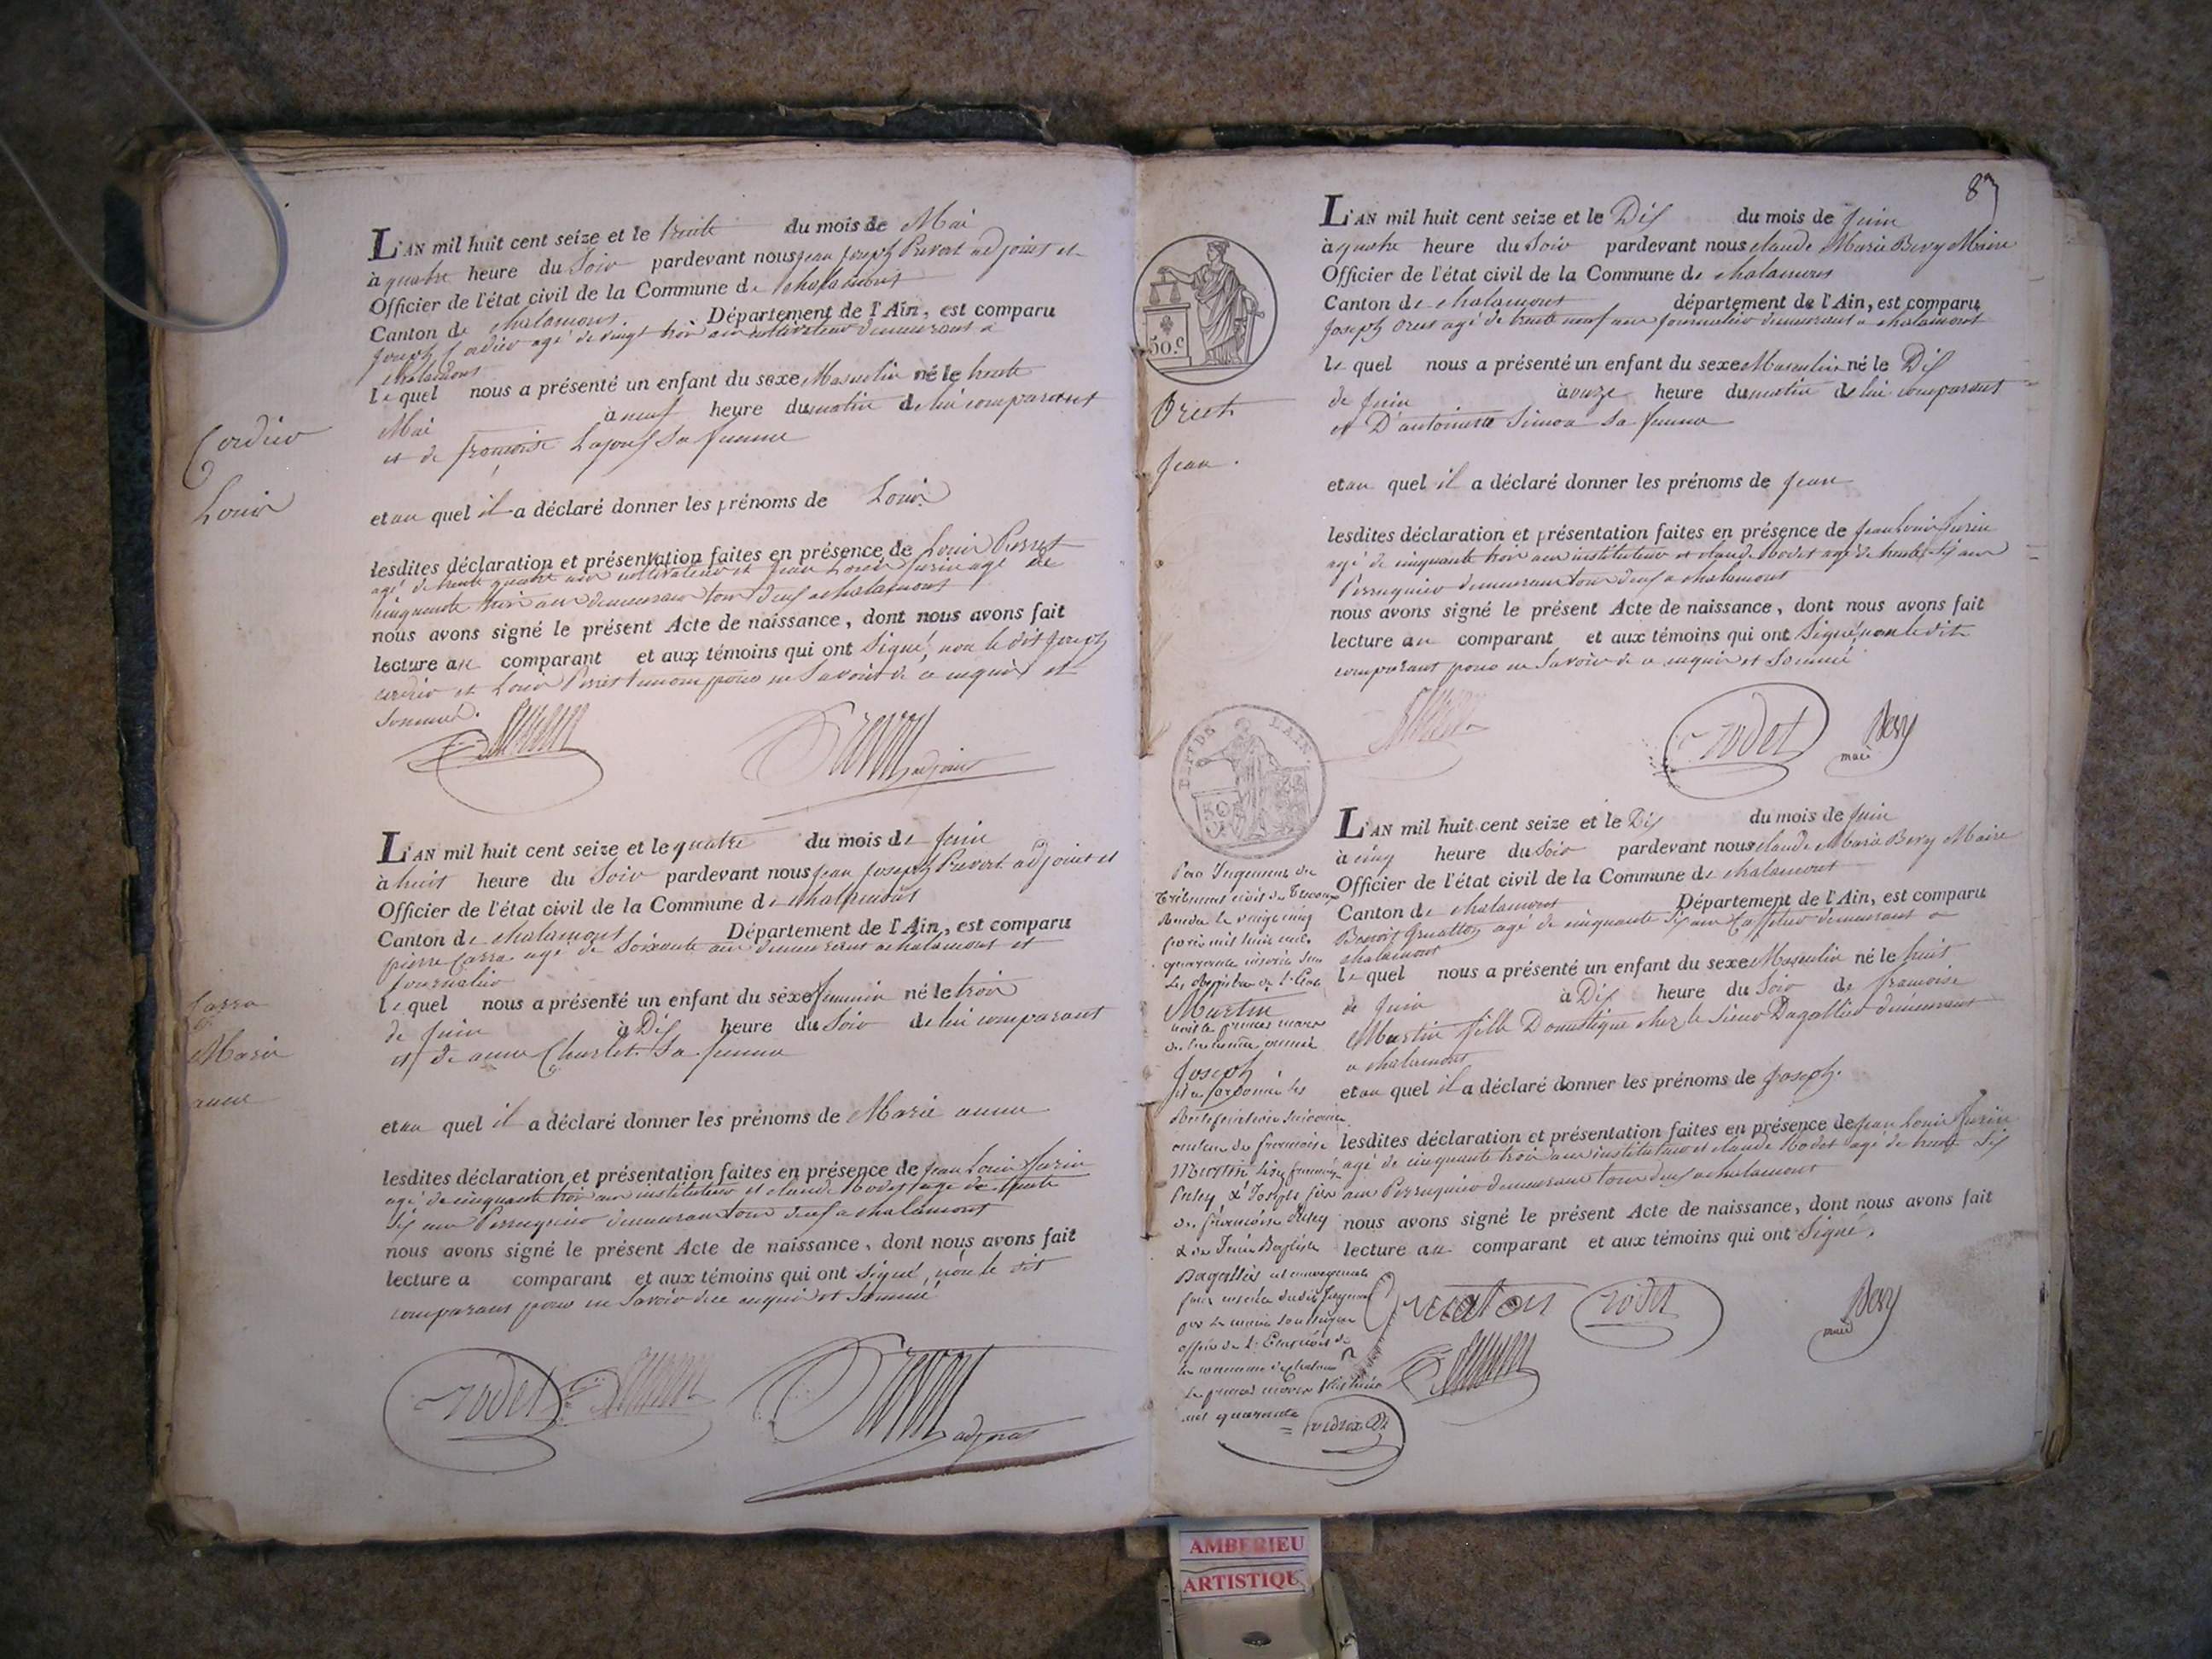 L'AN mil huit cent seize et le trente du mois de Mai
à quatre heure du Soir pardevant nous jean joseph Prevert adjoint et
Officier de l'état civil de la Commune de chalamont
Canton de chalamont Département de l'Ain, est comparu
joseph Cordier agé de vingt trois ans cultivateur demeurant a
chalamont
lequel nous a présenté un enfant du sexe Masculin né le trente
Mai à neuf heure du matin de lui comparant
et de françoise sa femme
Cordier
Louis
et au quel il a déclaré donner les prénoms de Louis
lesdites déclaration et présentation faites en présence de Louis Perret
agé de trente quatre ans cultivateur et jean Louis jurin agé de
cinquante trois ans demeurant tous deux a chalamont
nous avons signé le présent Acte de naissance, dont nous avons fait
lecture au comparant et aux témoins qui ont Signé, non le dit joseph
cordier et Louis Perret temoin pour ne Savoir de ce enquis et
Sommé.
adjoint
L'AN mil huit cent seize et le quatre du mois de juin
à huit heure du Soir pardevant nous jean joseph Prevert adjoint et
Officier de l'état civil de la Commune de chalamont
Canton de chalamont Département de l'Ain, est comparu
pierre Carra agé de Soixante ans demeurant a chalamont et
journalier
lequel nous a présenté un enfant du sexe feminin né le trois
de juin à Dix heure du Soir de lui comparant
et de anne Charlet Sa femme
Carra
Marie
anne
et au quel il a déclaré donner les prénoms de Marie anne
lesdites déclaration et présentation faites en présence de jean Louis jurin
agé de cinquante trois ans instituteur et claude Rodet agé de trente
Six ans Perruquier demeurant tous deux a chalamont
nous avons signé le présent Acte de naissance, dont nous avons fait
lecture a comparant et aux témoins qui ont Signé, non le dit
comparant pour ne Savoir de ce enquis et Sommé
rodet
adjoint
8
L'AN mil huit cent seize et le Dix du mois de juin
à quatre heure du Soir pardevant nous claude Marie Bery Maire
Officier de l'état civil de la Commune de chalamont
Canton de chalamont département de l'Ain, est comparu
joseph agé de trente neuf ans journalier demeurant a chalamont
50 c.
lequel nous a présenté un enfant du sexe Masculin né le Dix
de juin à onze heure du matin de lui comparant
et D'antoinette Simon Sa femme
jean.
et au quel il a déclaré donner les prénoms de jean
lesdites déclaration et présentation faites en présence de jean Louis jurin
agé de cinquante trois ans instituteur et claude Rodet agé de trente Six ans
Perruquier demeurant tous deux a chalamont
nous avons signé le présent Acte de naissance, dont nous avons fait
lecture au comparant et aux témoins qui ont Signé, non ledit
comparant pour ne Savoir de ce enquis et Sommé
rodet
Bery
maire
L'AIN
50
L'AN mil huit cent seize et le Dix du mois de juin
à cinq heure du Soir pardevant nous claude Marie Bery Maire
Officier de l'état civil de la Commune de chalamont
Canton de chalamont Département de l'Ain, est comparu
Benoit agé de cinquante Six ans demeurant a
chalamont
lequel nous a présenté un enfant du sexe Masculin né le huit
de juin à Dix heure du Soir de francoise
Martin fille Domestique chez le Sieur Dagallier demeurant
a chalamont
et au quel il a déclaré donner les prénoms de joseph.
lesdites déclaration et présentation faites en présence de jean Louis jurin
agé de cinquante trois ans instituteur et claude Rodet agé de trente Six
ans Perruquier demeurant tous deux a chalamont
nous avons signé le présent Acte de naissance, dont nous avons fait
lecture au comparant et aux témoins qui ont Signé.
Par Jugement du
Tribunal civil de Trevoux
le vingt cinq
mil huit cent
quarante inscrit sur
les Registres de l'état
Martin
Joseph
Martin
de la même année
de francoise
& Joseph
& de Jean Baptiste
Dagallier
dudit jugement
par le maire soussigné
officier de l'Etat civil de
la commune de chalamont
le premier mars mil huit
cent quarante
rodet
Bery
maire
AMBERIEU
ARTISTIQUE